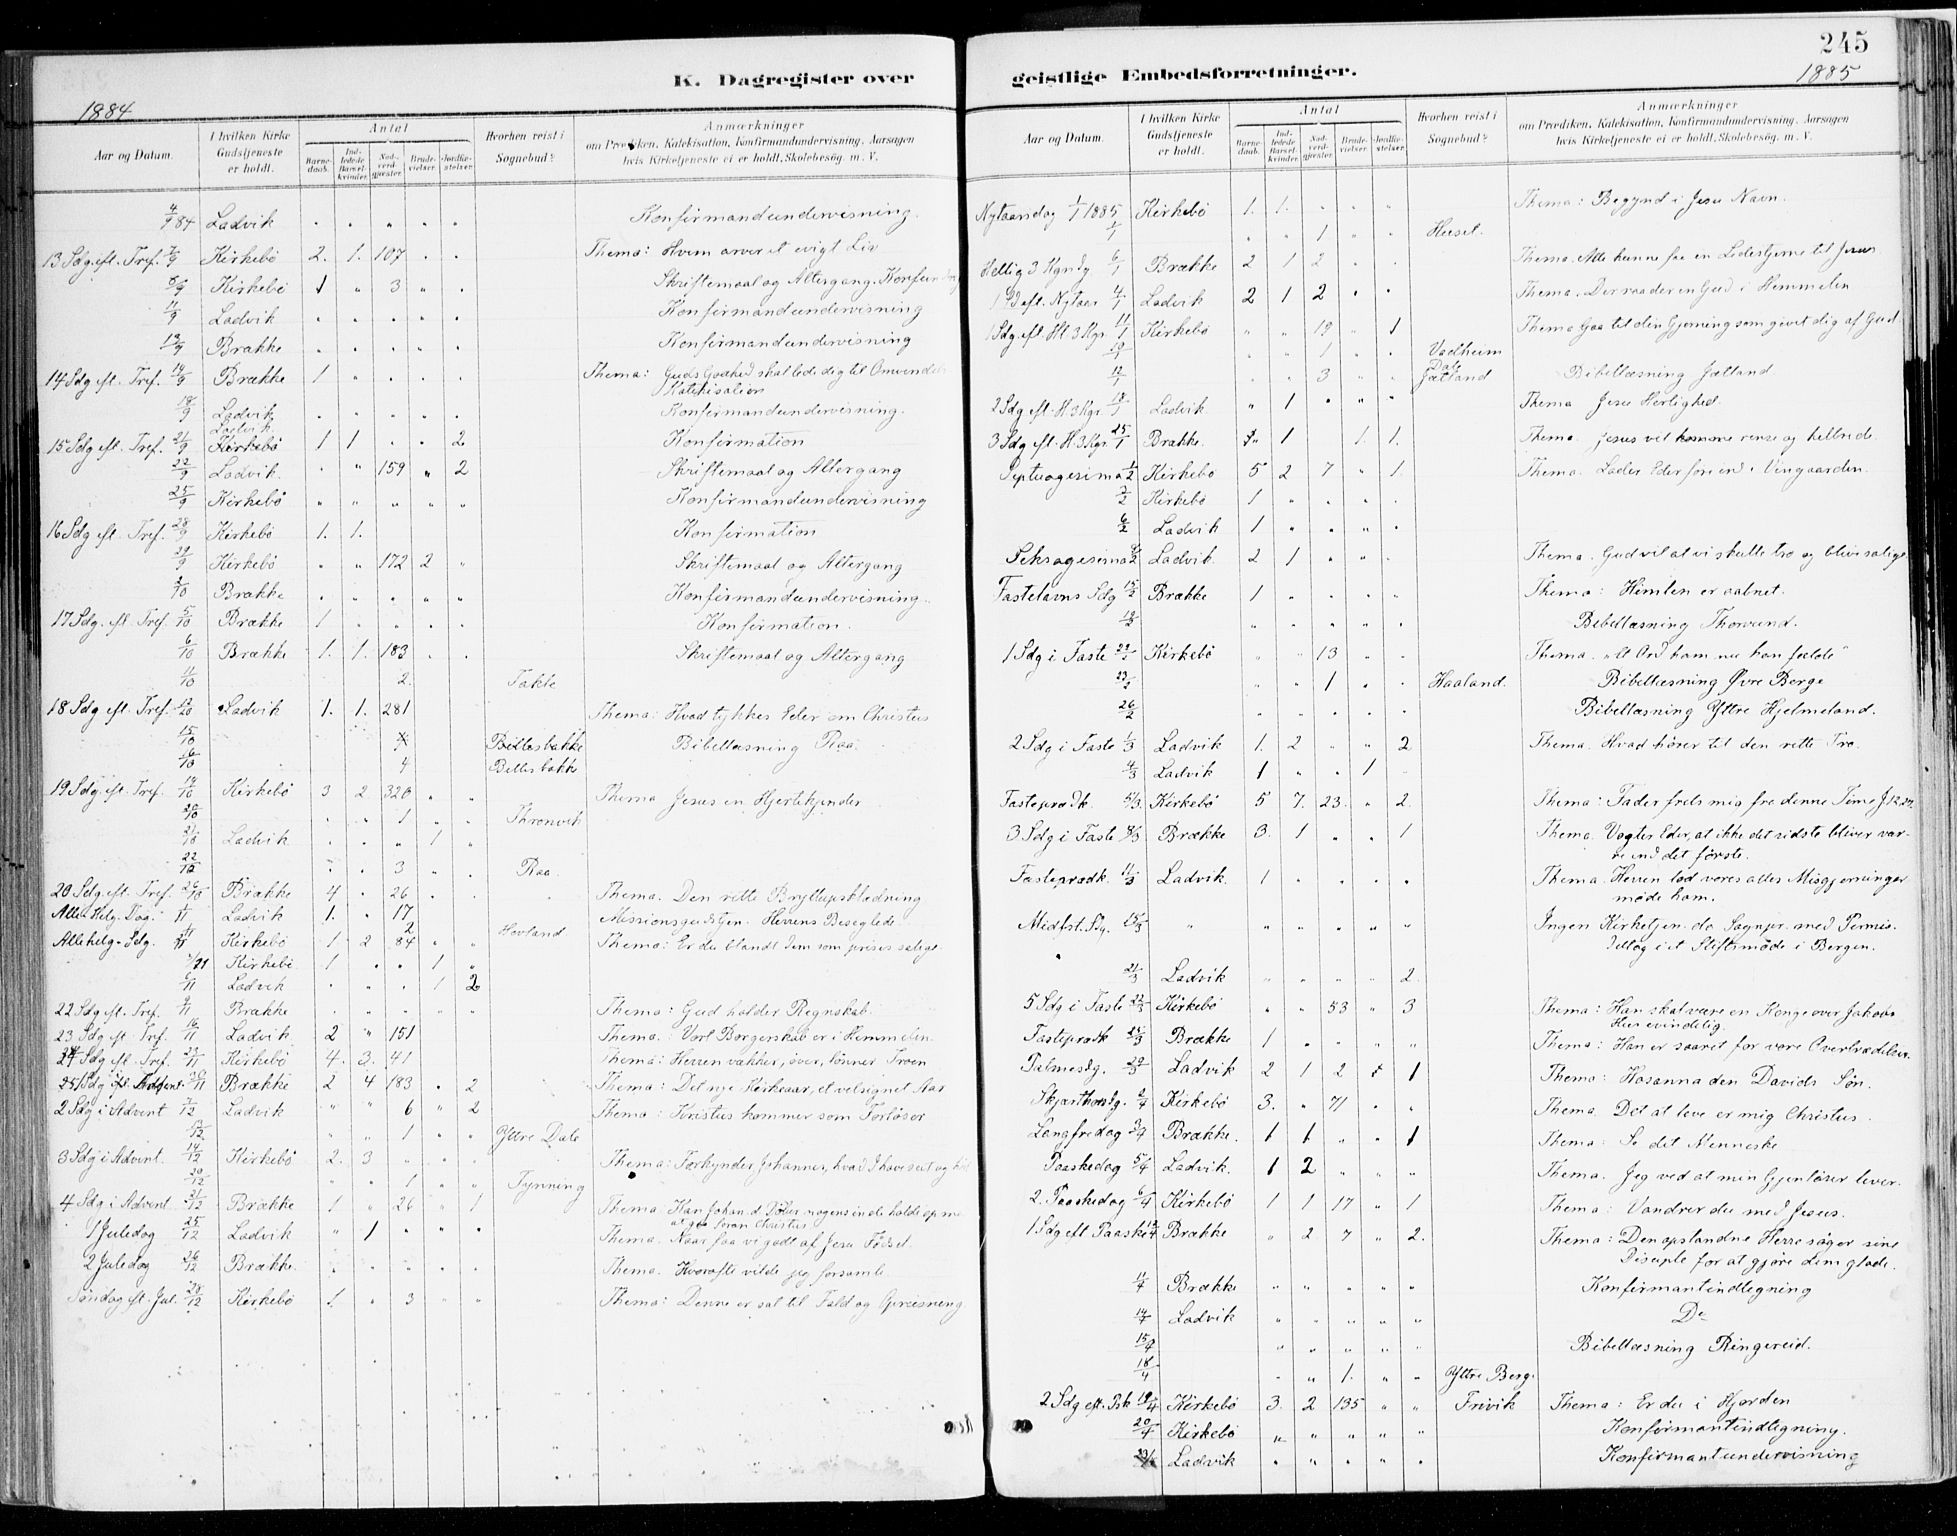 245
K. Dagregister over geistlige Embedsforretninger.
1884
1885
Aar og Datum. I hvilken Kirke Gudstjeneste er holdt. Antal Barnedaab. Indledede Barselkvinder. Nadverdgjæster. Brudevielser. Jordfæstelser. Hvorhen reist i Sognebud? Anmærkninger om Prædiken, Katekisation, Konfirmandundervisning, Aarsagen hvis Kirketjeneste ei er holdt, Skolebesøg. m. V.
4/9 84 Ladvik " " " " " Konfirmandundervisning.
13 Sdg. eft. Tref. 7/9 Kirkebö 2. 1. 107 " " Thema: Hvem arver et evigt Liv
8/9 Kirkebö 1 " 3 " " Skriftemaal og Altergang.
11/9 Ladvik " " " " " Konfirmandundervisning
Brække " " " " " Konfirmandundervisning
14 Sdg eft. Tref. 14/9 Brække 1 " " " " Thema: Guds Godhed skal lede dig til
Katekisation
18/9 Ladvik " " " " " Konfirmandundervisning.
Ladvik
15 Sdg eft. Tref. 21/9 Kirkebö 1 1 " " 2 Konfirmation
22/9 Ladvik " " 159 " 2 Skriftemaal og Altergang
25/9 Kirkebö " " " " " Konfirmandundervisning
16 Sdg eft. Tref. 28/9 Kirkebö 1. 1. Konfirmation
29/9 Kirkebö " " 172 2 " Skriftemaal og Altergang
Brække " " " " " Konfirmandundervisning.
17 Sdg. eft. Tref. 5/10 Brække 1 " " " " Konfirmation.
6/10 Brække 1. 1. 183 " " Skriftemaal og Altergang
11/10 2. Takle
18 Sdg eft. Tref. 12/10 Ladvik 1. 1. 281 Thema: Hvad tykkes Eder om Christus
15/10 Bibellæsning Raa.
16/10 4
19 Sdg. eft. Tref. 19/10 Kirkebö 3 2 320 " " Thema Jesus en Hjertekjender
20/10 " " 1 " " Thronvik
21/10 Ladvik " " " 1 "
22/10 " " 3 " " Raa.
20 Sdg. eft. Tref. 26/10 Brække 4 " 26 " " Thema. Den rette Bryllupsklædning
Alle Helg. Dag. 1/11 Ladvik 1. " 17 Missionsgudstjen. Herrens Beseglede.
2 Hovland
Allehelg. Sdg. Kirkebö 1 2 84 " " Thema: Er du blandt dem som prises salige.
Kirkebö 1 " " 1 "
6/11 Ladvik " " " 1 2
22 Sdg eft. Tref. 9/11 Brække " " " " " Thema: Gud holder Regnskab.
23 Sdg eft. Tref. 16/11 Ladvik 2 " 151 Thema: Vort Borgerskab er i Himmelen.
24 Sdg eft. Tref. 23/11 Kirkebö 4. 3. 41 Thema: Herren vækker, øver, lønner Troen
Brække 2 4 183 " 2 Thema: Det nye Kirkeaar, et velsignet Aar
2 Sdg i Advent 7/12 Ladvik " " 6 " 2 Thema: Kristus kommer som Forløser
" " 1 " " Yttre Dale
3 Sdg i Advent 14/12 Kirkebö 2. 3 " " " Thema: Forkynder Johannes, hvad I have seet og
20/12 " " 1 " " Tynning
4 Sdg i Advent 21/12 Brække 1 " 26 " 1 Thema:
1 Juledag 25/12 Ladvik " 1 " " " Thema. Naar faa vi godt af Jesu Fødsel.
2 Juledag 26/12 Brække. " " " " " Thema. Hvor ofte vilde jeg forsamle
Søndag eft. Jul. 28/12 Kirkebö 1. " 3 " " Thema: Denne er sat til Fald og Opreisning
Aar og Datum. I hvilken Kirke Gudstjeneste er holdt. Antal Barnedaab. Indledede Barselkvinder. Nadverdgjæster. Brudevielser. Jordfæstelser. Hvorhen reist i Sognebud? Anmærkninger om Prædiken, Katekisation, Konfirmandundervisning, Aarsagen hvis Kirketjeneste ei er holdt. Skolebesøg. m. V.
Nytaarsdag 1/1 1885 Kirkebö 1. 1. " " " Thema: Begynd i Jesu Navn.
1/1 " " 1 " "
Hellig 3 Kgrsdg. 6/1 Brække 2 1 2 " " Thema. Alle kunne faa en Ledestjerne til Jesus
1 Sd eft. Nytaar 4/1 Ladvik 2 1 2 " " Thema. Der raader en Gud i Himmelen
1 Sdg. eft. Hl. 3 Kgr. 11/1 Kirkebö " " 19 " 1 Thema Gaa til din Gjerning som givet dig af Gud.
" " 1 " " Vadheim
12/1 " " 3 " " Dale Jætland Bibellæsning Jætland
2 Sdg eft. H. 3 Kgr. 18/1 Ladvik. " 1 " " " Thema Jesu Herlighed.
3 Sdg eft. H. 3 Kgr. 25/1 Brække. " 1 1. 1. Thema. Jesus vil komme rense og helbrede.
Septuagesima 1/2 Kirkebö 5 2 7 " 1. Thema. Lader Eder føre ind i Vingaarden.
Kirkebö 1 " " " "
6/2 Ladvik 1 " " " "
Seksagesima Ladvik. 2 1 " " " Thema. Gud vil at vi skulle tro og blive salige.
Fastelavns Sdg 15/2 Brække 1 " " " " Thema: Himlen er aabnet.
" " " " " Bibellæsning Thorsund.
1 Sdg i Faste Kirkebö " " 13 " " Thema. "Et Ord ham nu kan fælde"
" " 1 " " Haaland. Bibellæsning Øvre Berge
26/2 " " " " " Bibellæsning Yttre Hjelmeland.
2 Sdg i Faste 1/3 Ladvik 1. 2 " " 2 Thema. Hvad hører til den rette Tro.
4/3 Ladvik 1 " " 1 "
Fasteprædk. 5/3. Kirkebö 5 7. 23. " 2. Thema: Fader frels mig fra denne Time J. 12.27.
3 Sdg i Faste 8/3 Brække 3. 1 " " 1 Thema. Vogter Eder, at ikke det sidste bliver var-
re end det første.
Fasteprædk. 11/3 Ladvik. 1 " " " " Thema. Herren lod vores alles Misgjerninger
møde ham.
Midfst. Sdg. 15/3 " " " " " " Ingen Kirketjen. da Sognpr. med Permis.
deltog i et Stiftsmøde i Bergen.
21/3 Ladvik " " " " 2.
5 Sdg i Faste 22/3 Kirkebö " " 53 " 3 Thema: Han skal være en Konge over Jakobs
Hus evindelig.
Fasteprædk Brække 1 " " " " Thema: Han er saaret for vore Overtrædelser.
Palmesdg. 29/3 Ladvik 2 1 2 1 Thema: Hosanna den Davids Søn.
Skjærthorsdg. 2/4 Kirkebö 3. " 71 " " Thema. Det at leve er mig Christus.
Langfredag 3/4 Brække. 1 1 " " 1 Thema: Se det Menneske
Paaskedag 5/4 Ladvik. 1 2 " " " Thema. Jeg ved at min Gjenløser lever.
2. Paaskedag 6/4 Kirkebö 1 1 17 " 1 Thema: Vandrer du med Jesus.
1 Sdg eft. Paaske Brække " 2 7 " 2. Thema: Den opstandne Herre søger sine
Disciple for at gjøre dem glade.
11/4 Brække " " " " " Konfirmantindtegning
14/4 Ladvik " " " " " Do
15/4 " " " " " Bibellæsning Ringereid.
18/4 " " 1. " " Yttre Berg.
2 Sdg eft. Psk 19/4 Kirkebö 3. 2 135 " " Trivik Thema: Er du i Hjorden
20/4 Kirkebö " " " " " Konfirmantindtegning.
Ladvik " " " " " Konfirmantundervisning